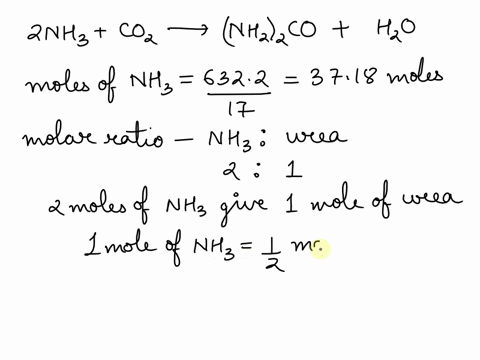 2NH₃ + CO₂ ⟶ (NH₂)₂CO + H₂O
moles of NH₃ = 632.2/17 = 37.18 moles
molar ratio – NH₃ : urea
2 : 1
2 moles of NH₃ give 1 mole of urea
1 mole of NH₃ = 1/2 mo